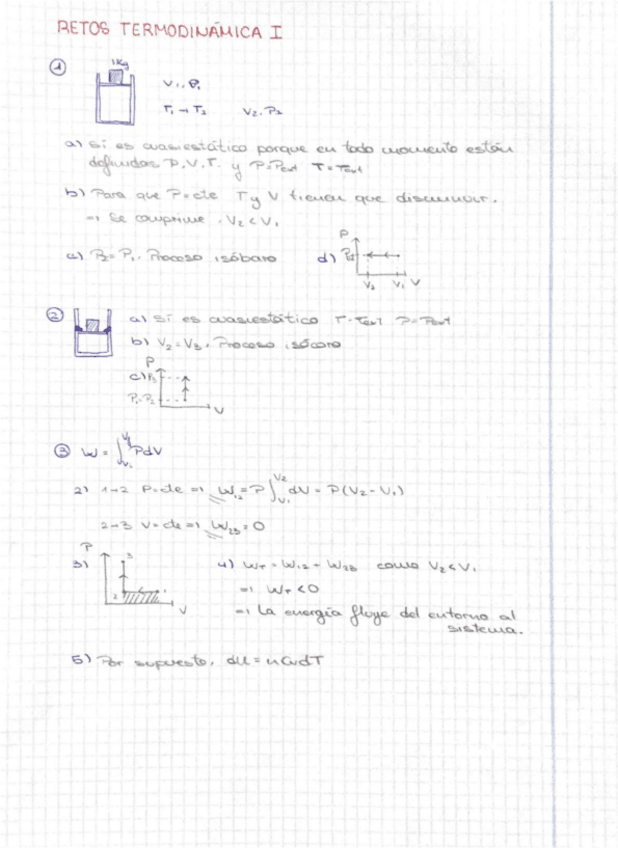 RETOS TERMODINÁMICA I
① 1Kg
V₁, P₁
T₁ → T₂ V₂, P₂
a) Sí es cuasiestático porque en todo momento están
definidas P, V, T. y P=Pext T=Text
b) Para que P=cte T y V tienen que disminuir.
⇒ Se comprime. V₂<V₁
c) P₂=P₁. Proceso isóbaro d) P
V₂ V₁ V
② a) Sí es cuasiestático T=Text P=Pext
b) V₂=V₃. Proceso isócoro
c) P
P₃
P₁=P₂
V
③ W = ∫ PdV
2) 1→2 P=cte ⇒ W₁₂=P∫dV = P(V₂-V₁)
2→3 V=cte ⇒ W₂₃=0
3) P 3 2 V
4) WT = W₁₂ + W₂₃ como V₂<V₁
⇒ WT<0
⇒ La energía fluye del entorno al
sistema.
5) Por supuesto, dU = nCvdT